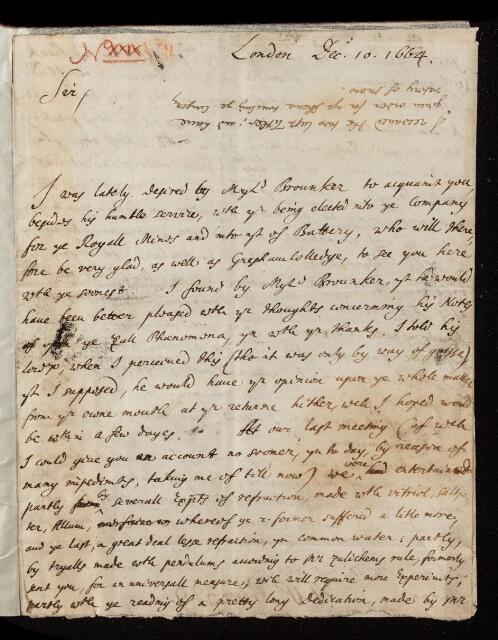 N° XXIX
London Dec. 10. 1664.
Sir,
I received the two last Letters; and have
given order for ye
I was lately desired by My Ld Brounker to acquaint you
besides his humble service, wth yr being elected into ye Company
for ye Royall Mines and into yt of Battery, who will there,
fore be very glad, as well as Gresham Colledge, to see you here
wth ye soonest. I found by My Ld Brounker, yt he would
have been better pleased wth yr thoughts concerning his Notes
of ye Phenomena, yn wth yr thanks. I told his
lordp, when I perceived this (tho it was only by way of guesse)
yt I supposed, he would have yr opinion upon ye whole matter
from yr owne mouth at yr returne hither, wch I hoped would
be within a few dayes. At our last meeting (of wch
I could give you an account no sooner, yn to day, by reason of
many impediments, taking me of till now) we were entertained
partly by severall Expts of refraction, made wth vitriol, saltpe,
ter, Allum, whereof ye 2 former suffered a litle more,
and ye last, a great deal lesse refraction, yn common water; partly,
by tryalls made with pendulums according to Mr Zulichems rule, formerly
sent you, for an universall measure; wch will require more Experimts,
partly wth ye reading of a pretty long Dedication, made by Mr